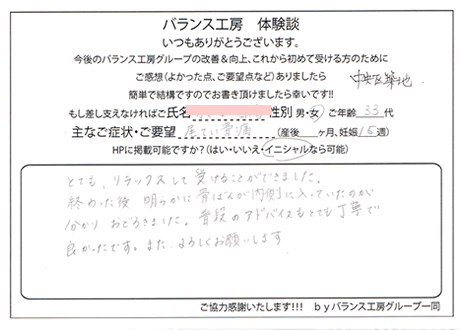 バランス工房　体験談
いつもありがとうございます。
今後のバランス工房グループの改善＆向上、これから初めて受ける方のために
ご感想（よかった点、ご要望点など）ありましたら
簡単で結構ですのでお書き頂けましたら幸いです!!
中央区築地
もし差し支えなければご氏名 性別 男・女 ご年齢 33 代
主なご症状・ご要望 尾てい骨痛 （産後 ヶ月、妊娠 15 週）
HPに掲載可能ですか？（はい・いいえ・イニシャルなら可能）
とても、リラックスして受けることができました。
終わった後 明らかに骨ばんが内側に入っていたのが
分かり おどろきました。普段のアドバイスもとても丁寧で
良かったです。また、よろしくお願いします
ご協力感謝いたします!!!　byバランス工房グループ一同